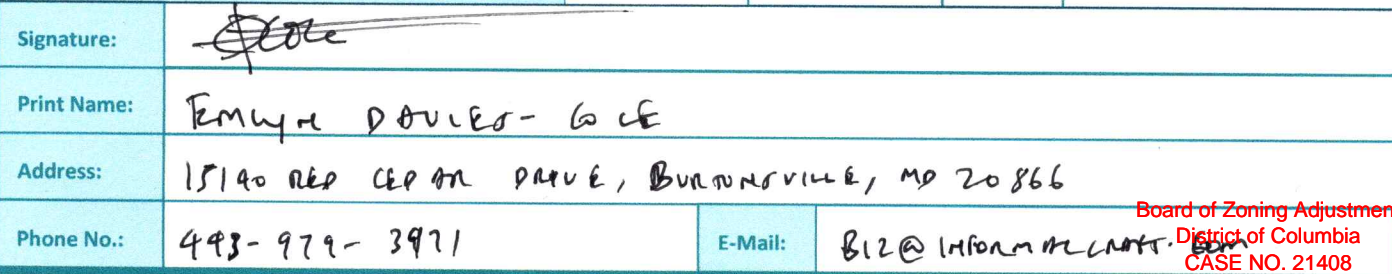 Signature:
Print Name: DAVIES-COLE
Address: 15190 RED CEDAR DRIVE, BURTONSVILLE, MD 20866
Phone No.: 443-979-3971 E-Mail: BIZ@INFORMALCRAFT.com
Board of Zoning Adjustmen
District of Columbia
CASE NO. 21408